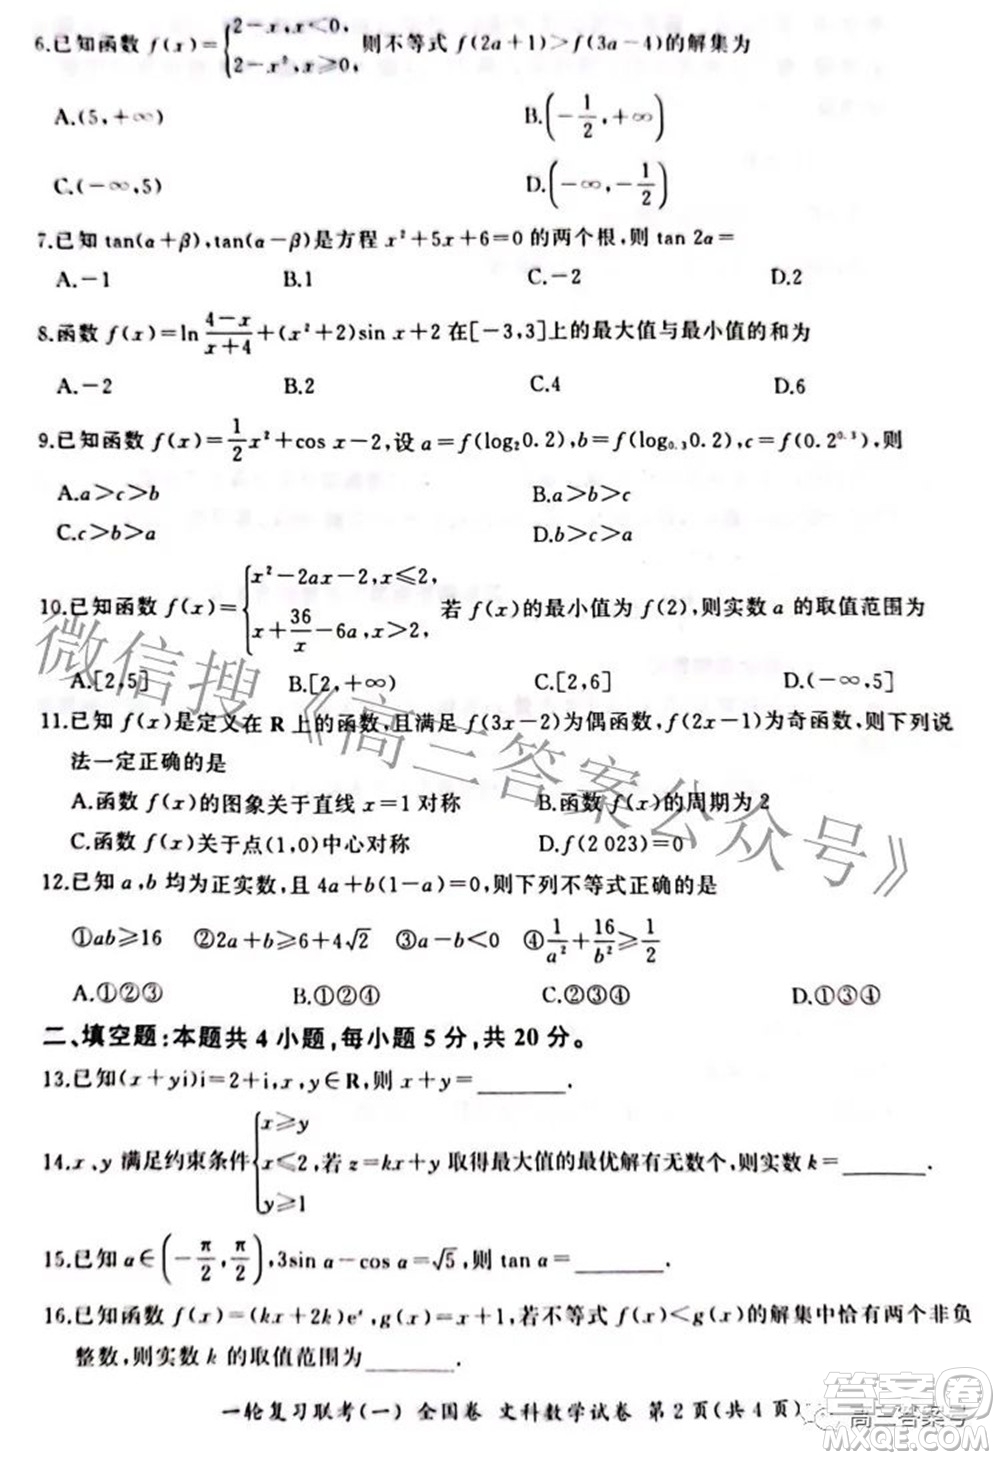 6.已知函数 f(x)={2-x,x<0, 2-x²,x≥0, 则不等式 f(2a+1)>f(3a-4)的解集为
A.(5,+∞) B.(-1/2,+∞)
C.(-∞,5) D.(-∞,-1/2)
7.已知 tan(α+β),tan(α-β)是方程 x²+5x+6=0 的两个根,则 tan 2α=
A.-1 B.1 C.-2 D.2
8.函数 f(x)=ln (4-x)/(x+4)+(x²+2)sin x+2 在[-3,3]上的最大值与最小值的和为
A.-2 B.2 C.4 D.6
9.已知函数 f(x)=1/2x²+cos x-2,设 a=f(log₂0.2),b=f(log₀.₃0.2),c=f(0.2^0.3),则
A.a>c>b B.a>b>c
C.c>b>a D.b>c>a
10.已知函数 f(x)={x²-2ax-2,x≤2, x+36/x-6a,x>2, 若 f(x)的最小值为 f(2),则实数 a 的取值范围为
A.[2,5] B.[2,+∞) C.[2,6] D.(-∞,5]
11.已知 f(x)是定义在 R 上的函数,且满足 f(3x-2)为偶函数,f(2x-1)为奇函数,则下列说
法一定正确的是
A.函数 f(x)的图象关于直线 x=1 对称 B.函数 f(x)的周期为 2
C.函数 f(x)关于点(1,0)中心对称 D.f(2 023)=0
12.已知 a,b 均为正实数,且 4a+b(1-a)=0,则下列不等式正确的是
①ab≥16 ②2a+b≥6+4√2 ③a-b<0 ④1/a²+16/b²≥1/2
A.①②③ B.①②④ C.②③④ D.①③④
二、填空题:本题共 4 小题,每小题 5 分,共 20 分。
13.已知(x+yi)i=2+i,x,y∈R,则 x+y=______.
14.x、y 满足约束条件{x≥y x≤2 y≥1,若 z=kx+y 取得最大值的最优解有无数个,则实数 k=______.
15.已知 α∈(-π/2,π/2),3sin α-cos α=√5,则 tan α=______.
16.已知函数 f(x)=(kx+2k)eˣ,g(x)=x+1,若不等式 f(x)<g(x)的解集中恰有两个非负
整数,则实数 k 的取值范围为______.
一轮复习联考(一) 全国卷 文科数学试卷 第 2 页(共 4 页)
微信搜《高三答案公众号》
高三答案号
答案圈
MXQE.COM